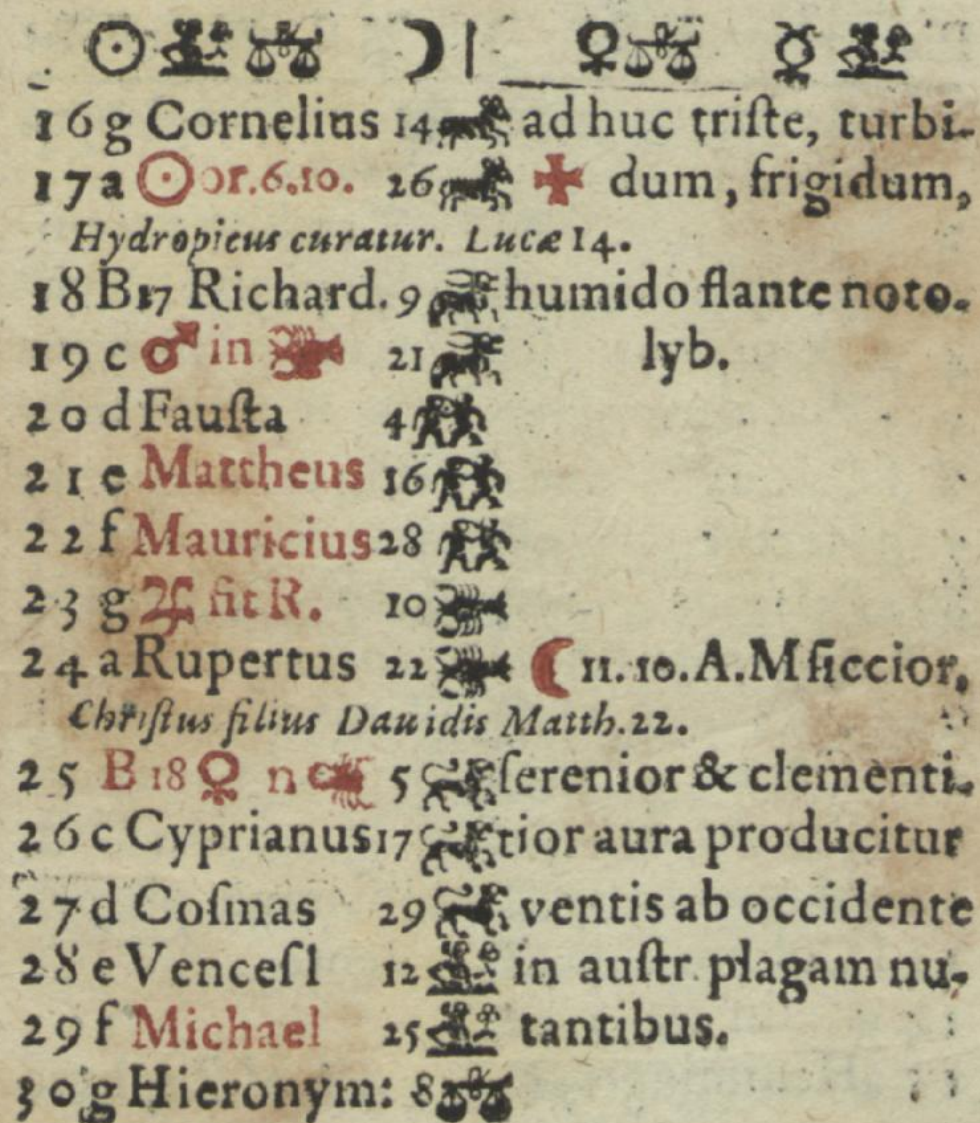 ☉ ♍ ♎ ☽ | ♀ ♎ ☿ ♍
16 g Cornelius 14 ♉ ad huc triſte, turbi-
17 a ☉ or. 6. 10. 26 ♉ ✠ dum, frigidum,
Hydropicus curatur. Lucæ 14.
18 B 17 Richard. 9 humido flante noto-
19 c ♂ in ♏ 21 lyb.
20 d Fauſta 4 ♊
21 e Mattheus 16 ♊
22 f Mauricius 28 ♊
23 g ♃ fit R. 10 ♋
24 a Rupertus 22 ♋ ☾ 11. 10. A. M ſiccior,
Chriſtus filius Dauidis Matth. 22.
25 B 18 ♀ n 5 ♌ ſerenior & clementi-
26 c Cyprianus 17 ♌ tior aura producitur
27 d Coſmas 29 ♌ ventis ab occidente
28 e Venceſl 12 ♍ in auſtr. plagam nu-
29 f Michael 25 ♍ tantibus.
30 g Hieronym: 8 ♎